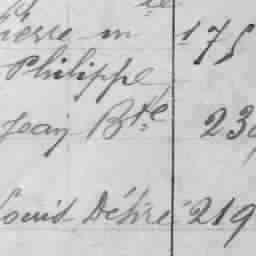 ierre m 175
Philippe
Jean Bte 23
Louis Désiré 219